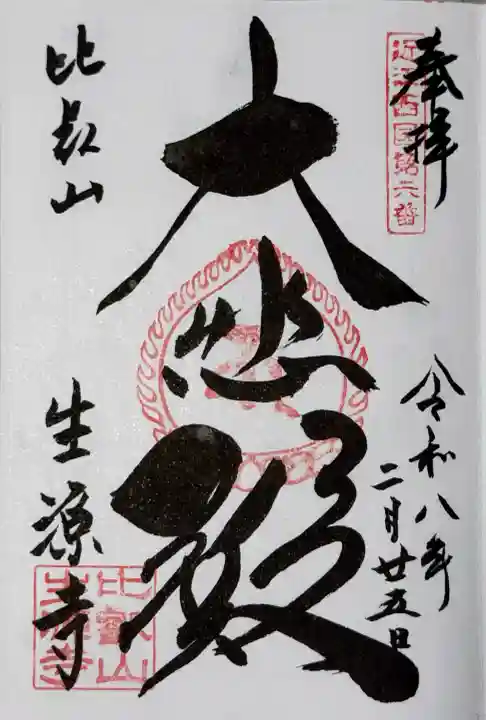 奉拝
近江西国第六番
令和八年
二月廿五日
大悲殿
比叡山
生源寺
比叡山
生源寺